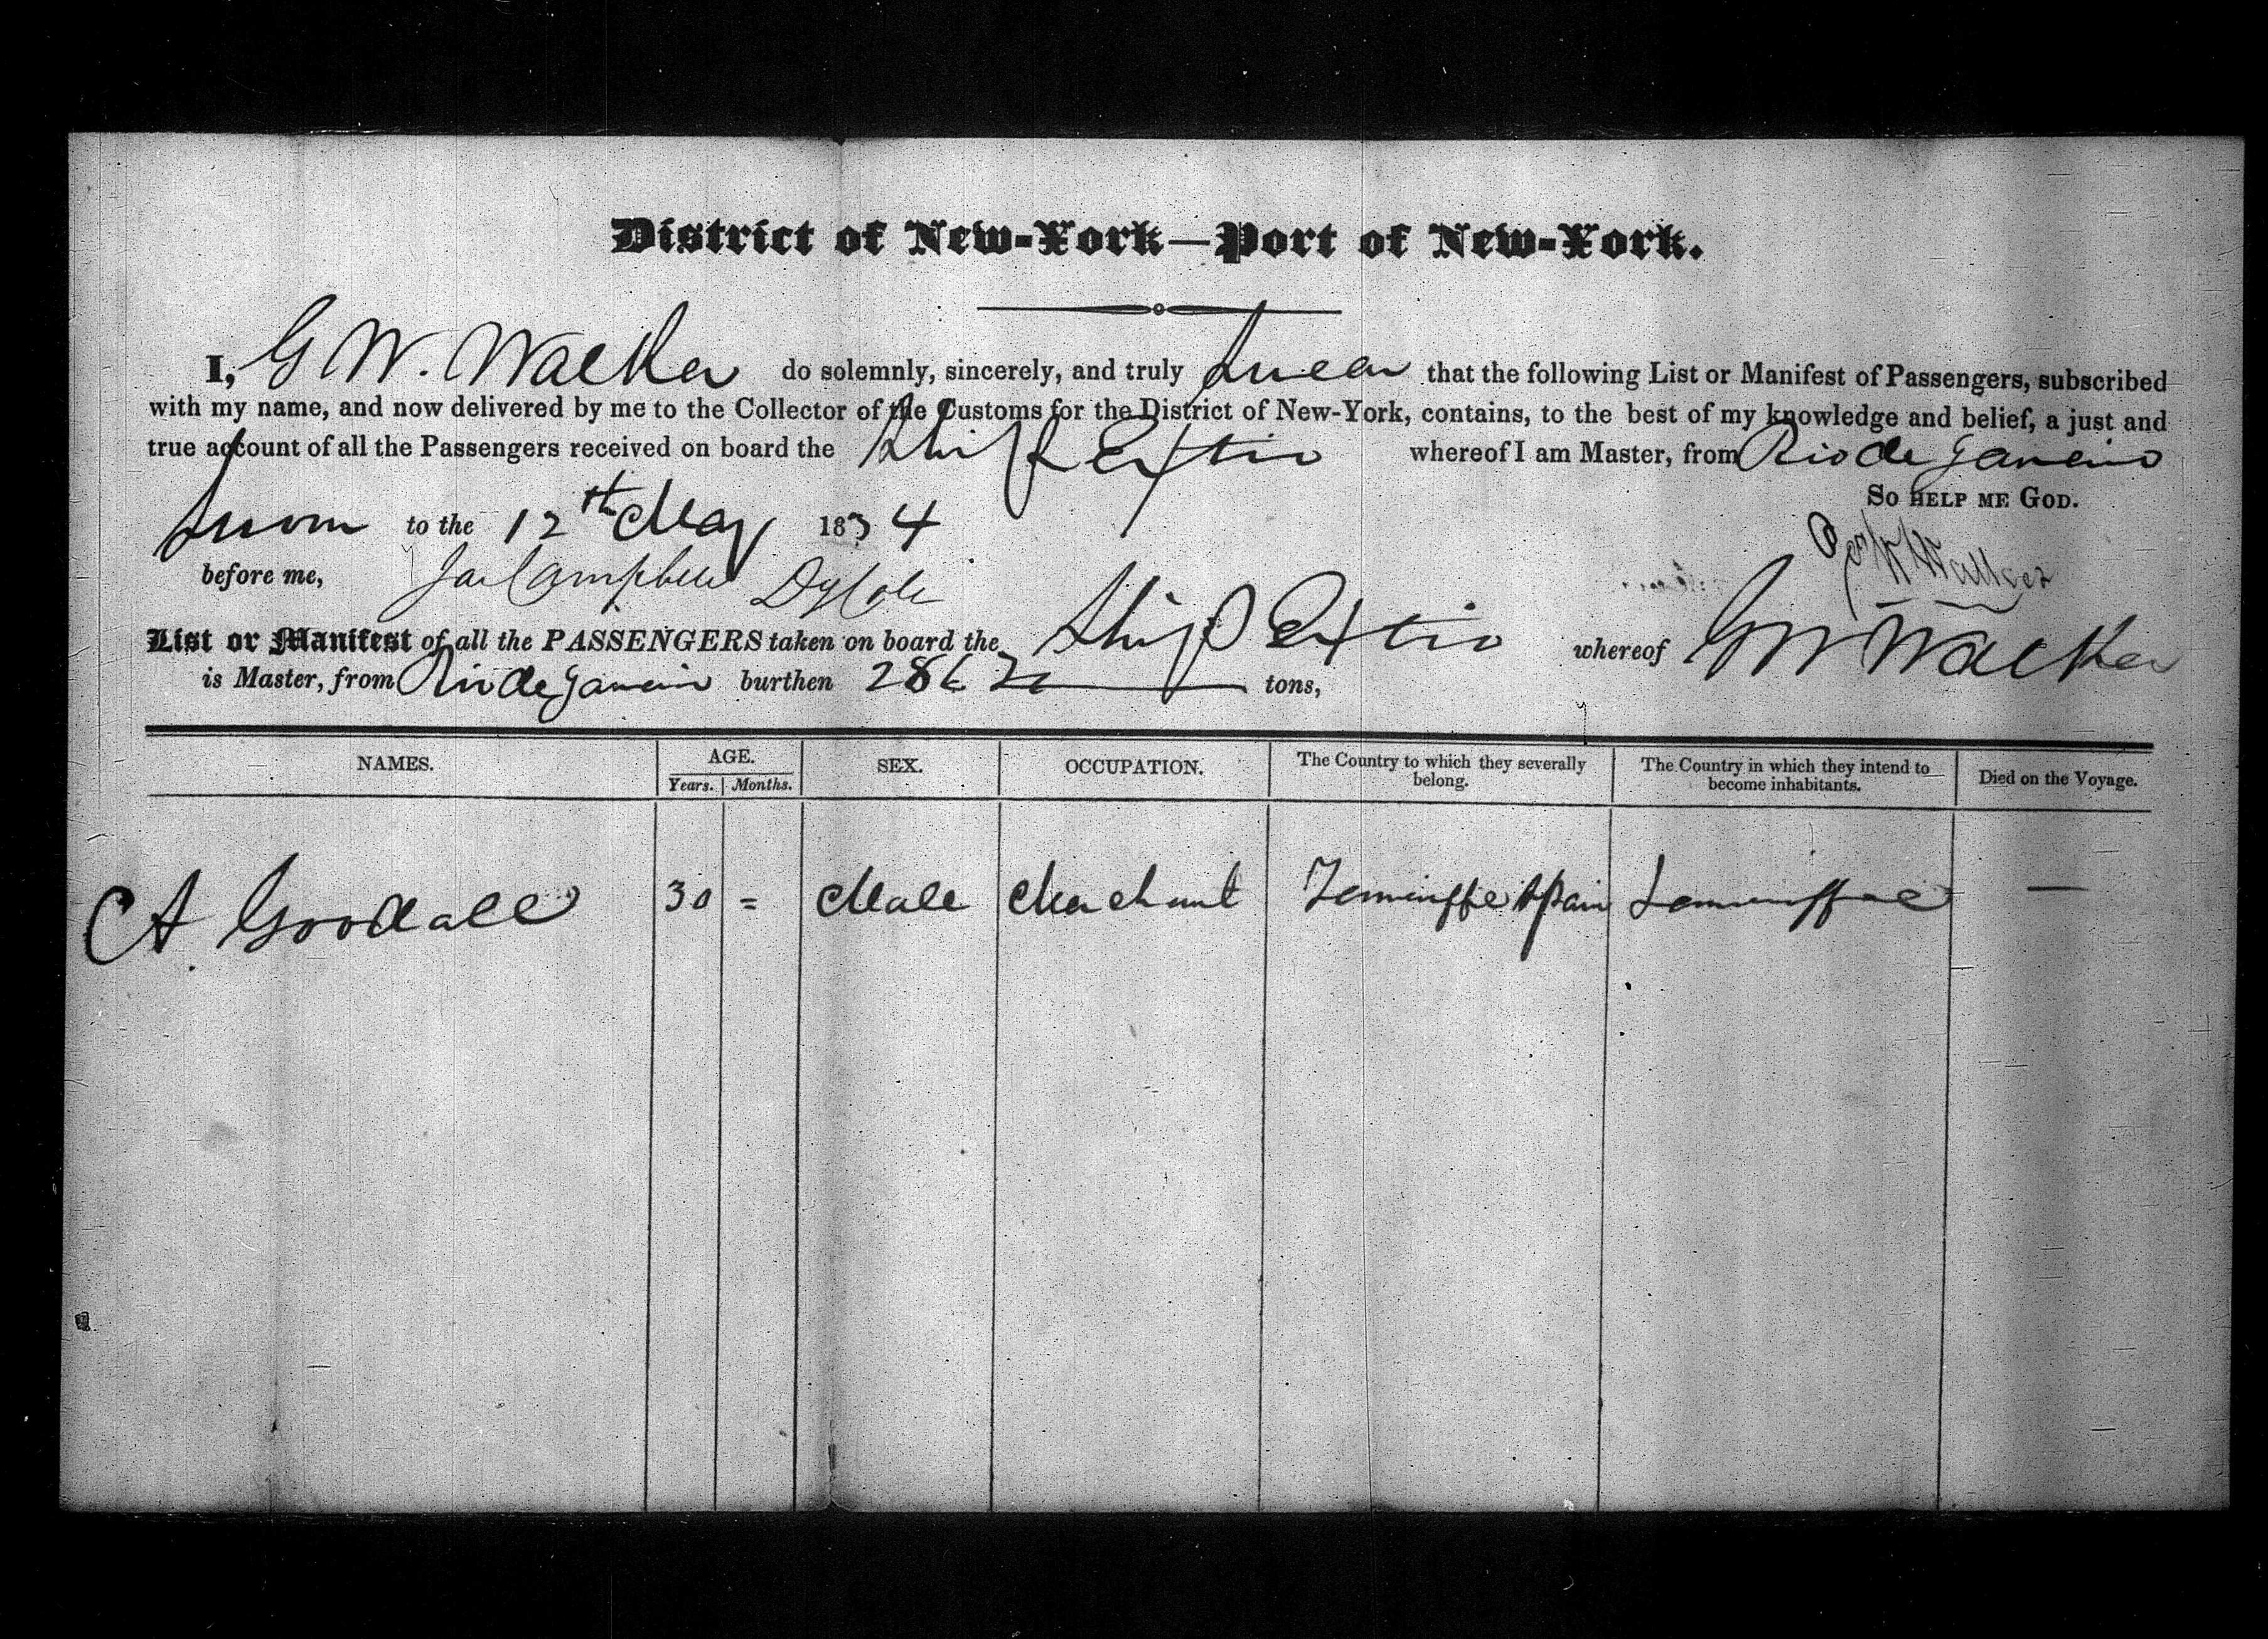 District of New-York—Port of New-York.
I, G W. Walker do solemnly, sincerely, and truly swear that the following List or Manifest of Passengers, subscribed
with my name, and now delivered by me to the Collector of the Customs for the District of New-York, contains, to the best of my knowledge and belief, a just and
true account of all the Passengers received on board the Ship whereof I am Master, from Rio de Janeiro
So HELP ME GOD.
Sworn to the 12th May 1834
before me, Jas Campbell Dy Col
G W Walker
List or Manifest of all the PASSENGERS taken on board the Ship whereof G W Walker
is Master, from Rio de Janeiro burthen tons,
NAMES. AGE. SEX. OCCUPATION. The Country to which they severally belong. The Country in which they intend to become inhabitants. Died on the Voyage.
Years. Months.
A Goodall 30 = Male Merchant Spain —